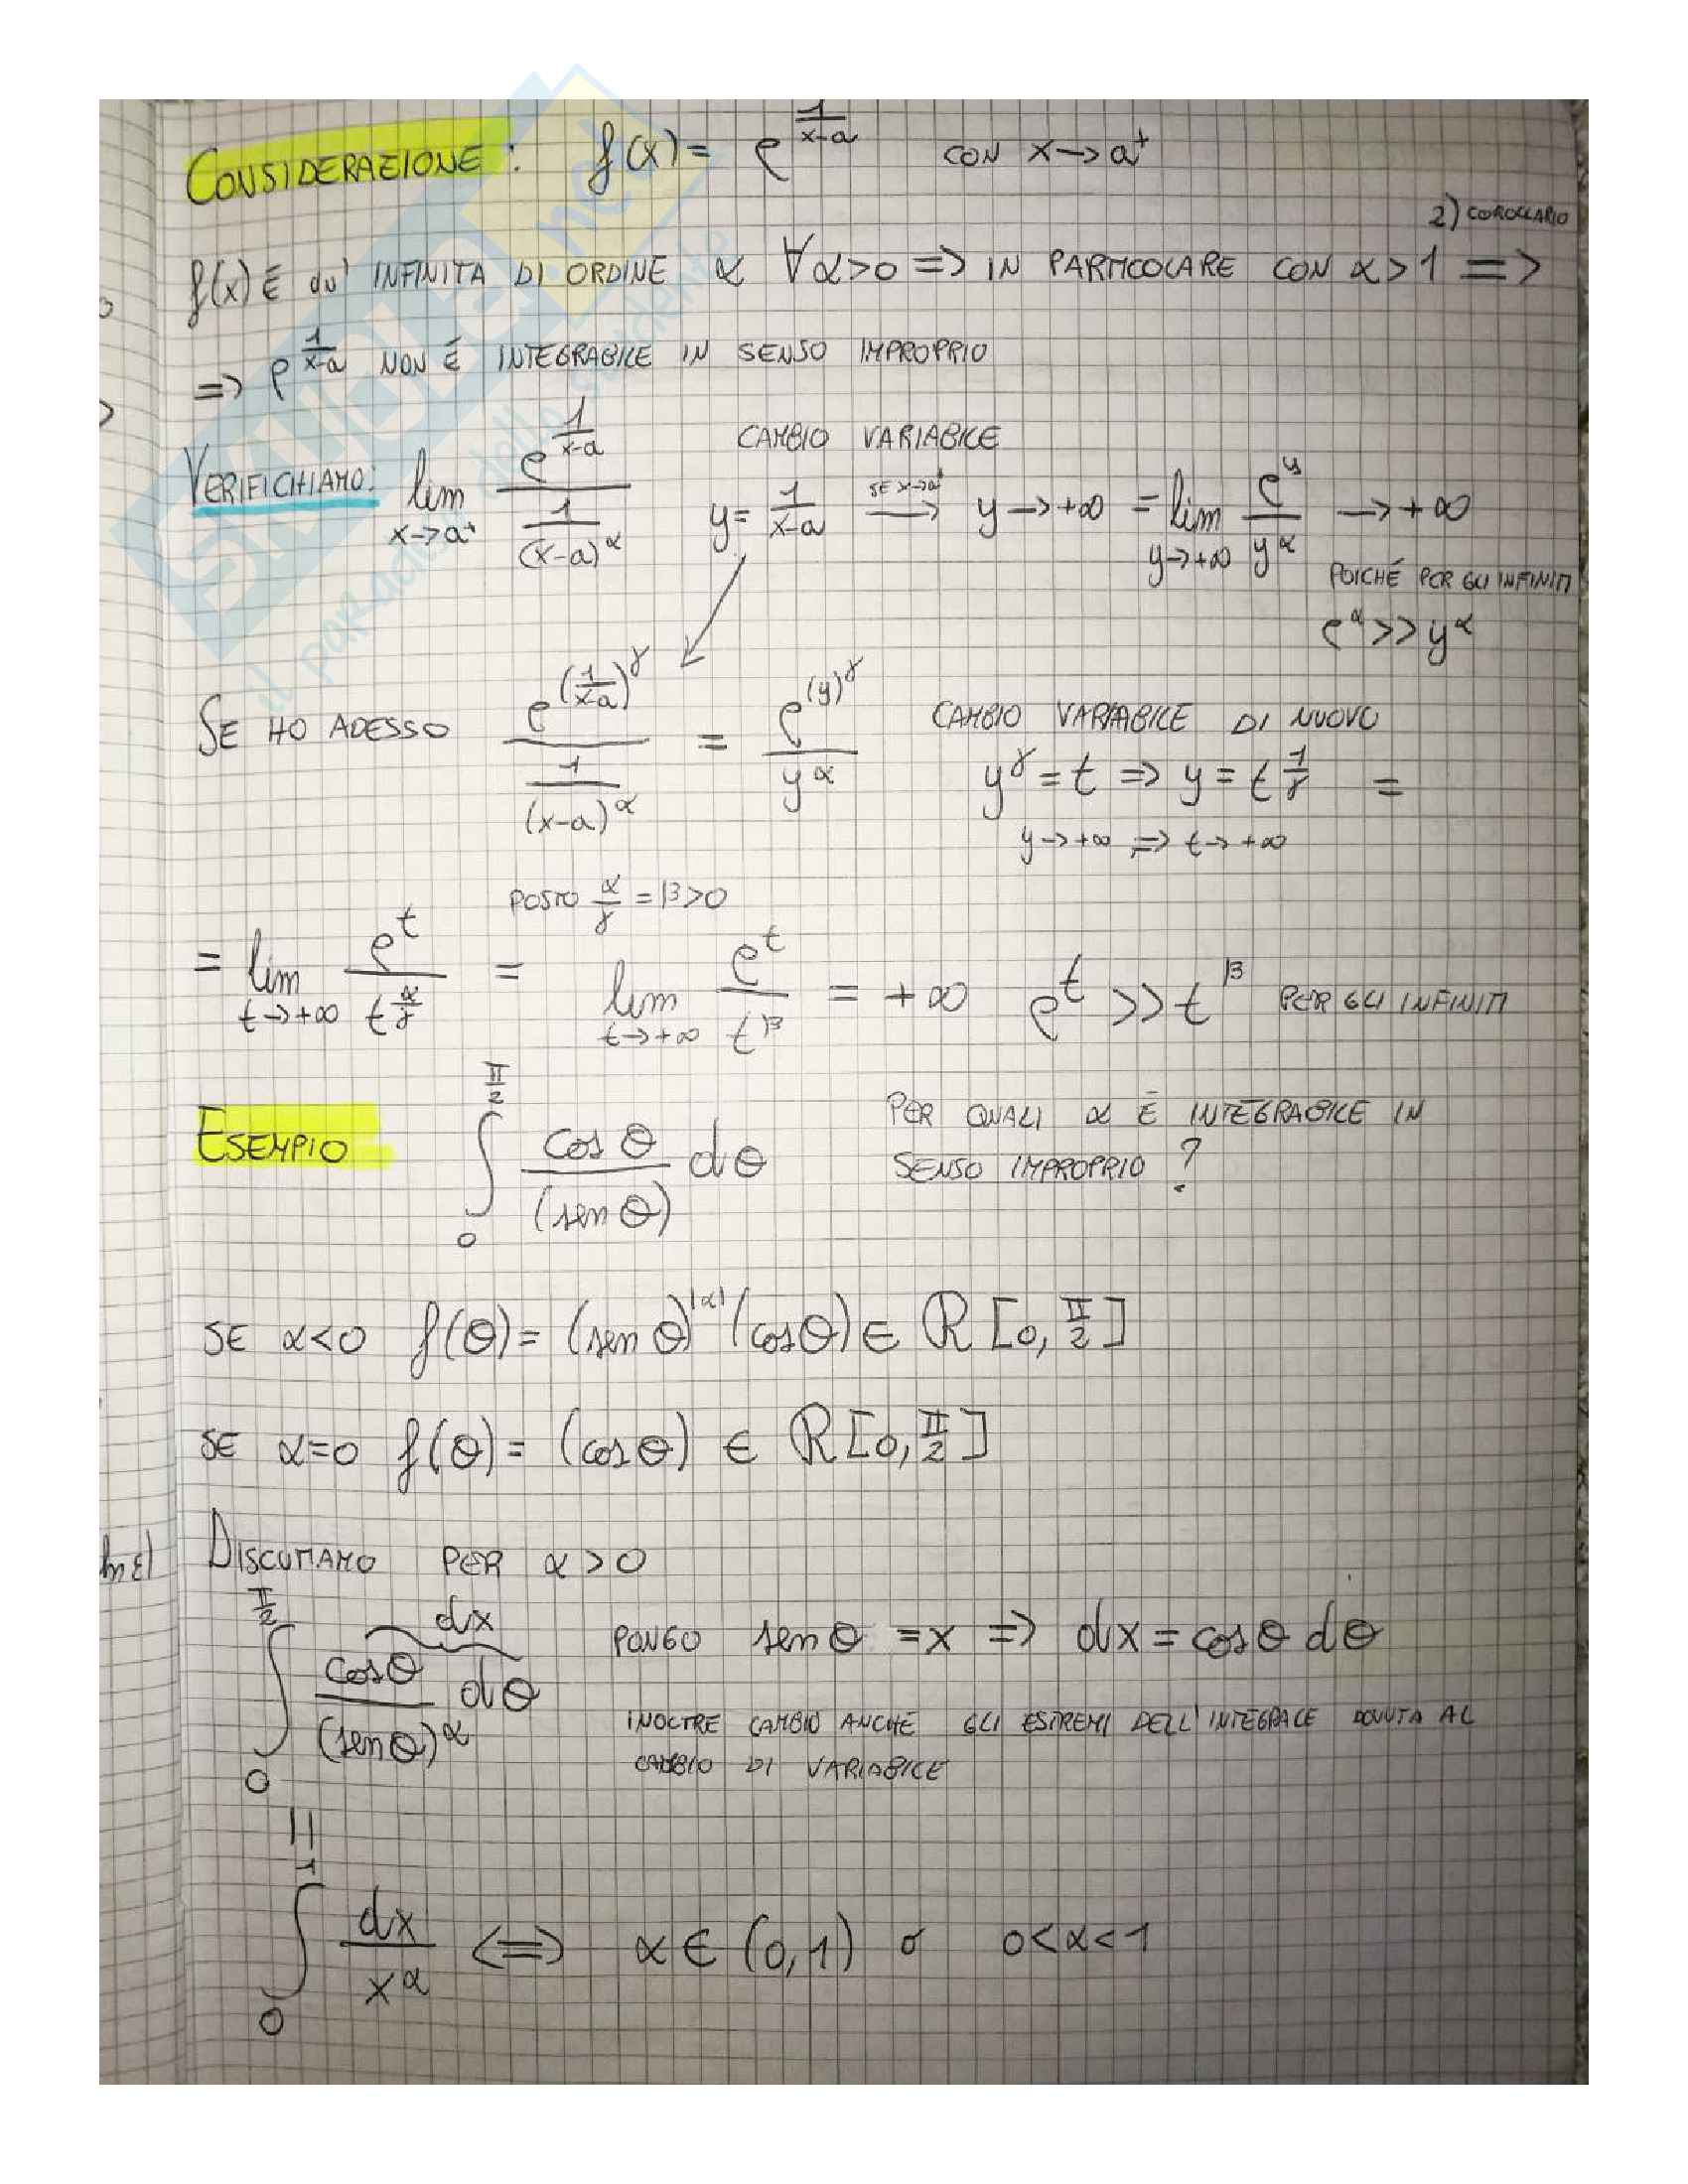 CONSIDERAZIONE: f(x) = e^{\frac{1}{x-a}} CON x→a⁺
2) COROLLARIO
f(x) È INFINITA DI ORDINE α ∀α>0 => IN PARTICOLARE CON α>1 =>
=> e^{\frac{1}{x-a}} NON È INTEGRABILE IN SENSO IMPROPRIO
CAMBIO VARIABILE
VERIFICHIAMO: lim_{x→a⁺} \frac{e^{\frac{1}{x-a}}}{\frac{1}{(x-a)^α}} y = \frac{1}{x-a} \xrightarrow{SE x→a⁺} y→+∞ = lim_{y→+∞} \frac{e^y}{y^α} → +∞
POICHÉ PER GLI INFINITI
e^α >> y^α
SE HO ADESSO \frac{e^{(\frac{1}{x-a})^γ}}{\frac{1}{(x-a)^α}} = \frac{e^{(y)^γ}}{y^α} CAMBIO VARIABILE DI NUOVO
y^γ = t => y = t^{\frac{1}{γ}} =
y→+∞ => t→+∞
POSTO \frac{α}{γ} = β>0
= lim_{t→+∞} \frac{e^t}{t^{\frac{α}{γ}}} = lim_{t→+∞} \frac{e^t}{t^β} = +∞ e^t >> t^β PER GLI INFINITI
ESEMPIO ∫_0^{\frac{π}{2}} \frac{cos θ}{(sen θ)} dθ PER QUALI α È INTEGRABILE IN
SENSO IMPROPRIO ?
SE α<0 f(θ) = (sen θ)^{|α|} (cos θ) ∈ R [0, \frac{π}{2}]
SE α=0 f(θ) = (cos θ) ∈ R [0, \frac{π}{2}]
DISCUTIAMO PER α>0
∫_0^{\frac{π}{2}} \frac{cos θ}{(sen θ)^α} dθ dx PONGO sen θ = x => dx = cos θ dθ
INOLTRE CAMBIO ANCHE GLI ESTREMI DELL'INTEGRALE DOVUTA AL
CAMBIO DI VARIABILE
=
∫_0^1 \frac{dx}{x^α} <=> α ∈ (0,1) o 0<α<1